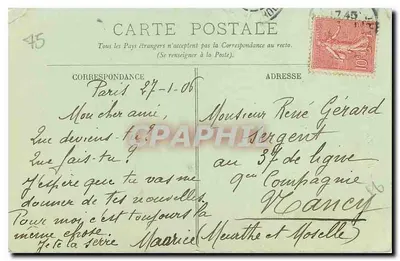 75
CARTE POSTALE
Tous les Pays étrangers n'acceptent pas la Correspondance au recto.
(Se renseigner à la Poste).
CORRESPONDANCE
Paris 27-1-06
Mon cher ami,
Que deviens-tu?
Que fais-tu?
J'espère que tu vas me
donner de tes nouvelles.
Pour moi c'est toujours la
même chose.
Je te la serre Maurice
ADRESSE
Monsieur René Gérard
sergent
au 37 de ligne
9me Compagnie
Nancy
(Meurthe et Moselle)
CPArama.com